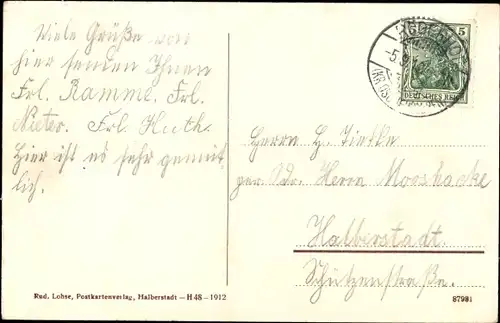 Viele Grüße von
hier senden Ihnen
Frl. Ramme. Frl.
Nieter. Frl. Huth.
Hier ist es sehr gemüt-
lich.
5
DEUTSCHES REICH
Herrn H. Tietke
per. Adr. Herrn Mooshacke
Halberstadt.
Schützenstraße.
Rud. Lohse, Postkartenverlag, Halberstadt — H 48 — 1912
87981